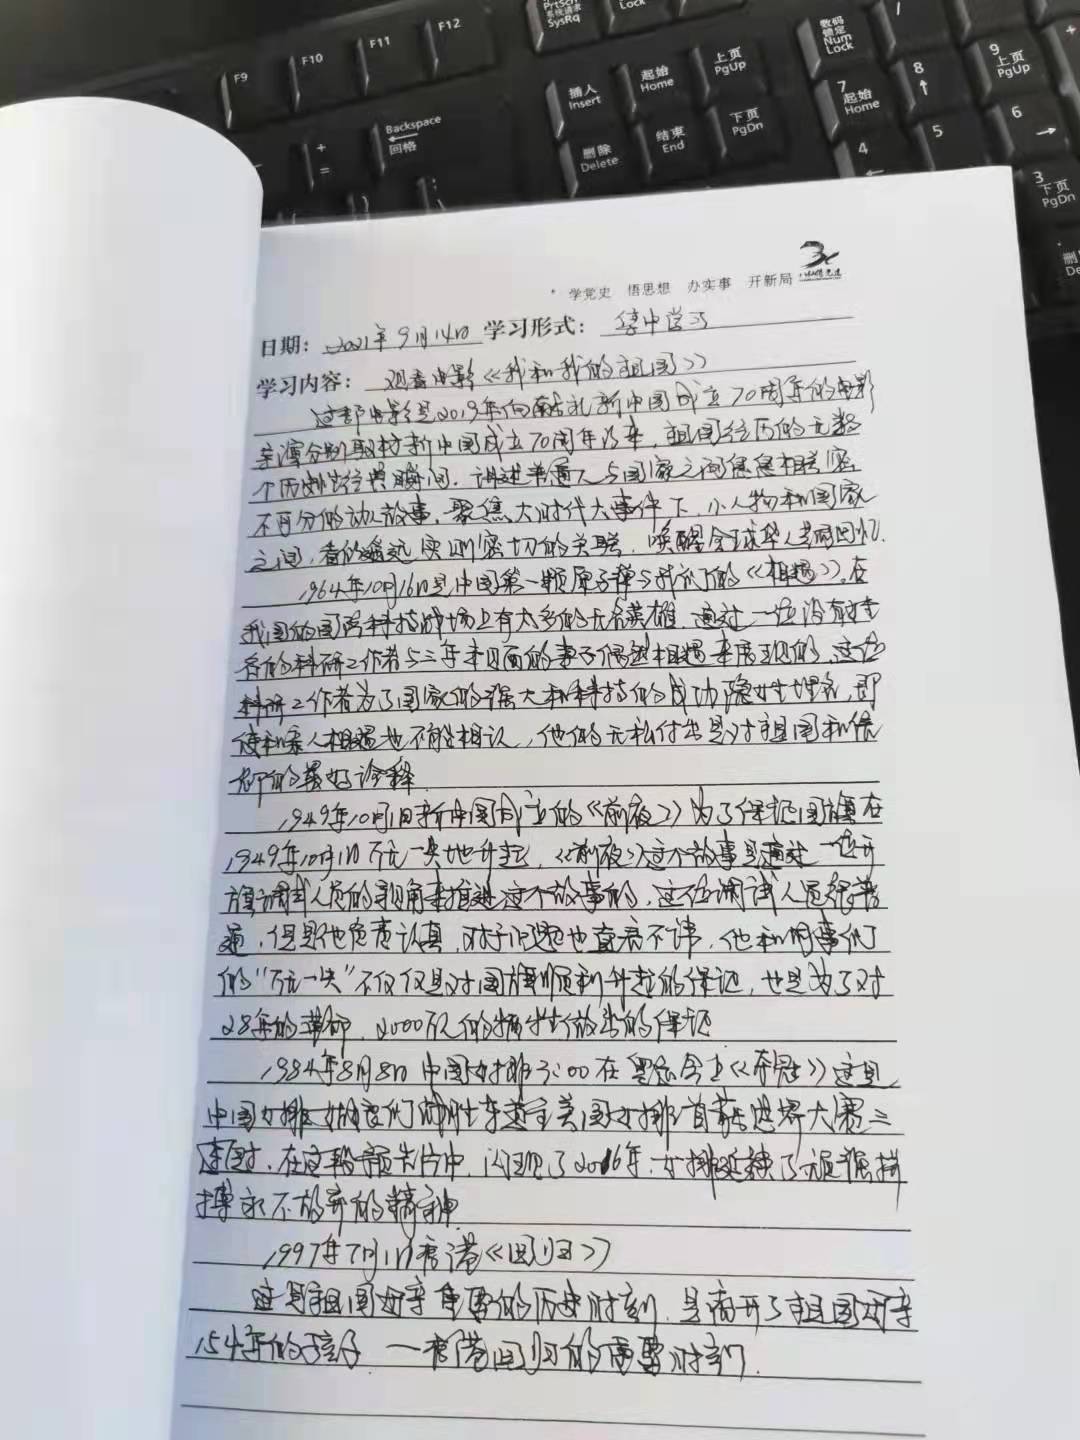 F9
F10
F11
F12
PrtSc
系统请求
SysRq
Lock
数码
锁定
Num
Lock
/
Backspace
回格
+
=
插入
Insert
起始
Home
上页
PgUp
删除
Delete
结束
End
下页
PgDn
7
起始
Home
8
↑
9
上页
PgUp
4
←
5
6
→
3
下页
PgDn
学党史 悟思想 办实事 开新局
日期: 2021年9月14日 学习形式: 集中学习
学习内容: 观看电影《我和我的祖国》
这部电影是2019年向献礼新中国成立70周年的电影
亲演分别取材新中国成立70周年以来,祖国经历的无数
个历史性经典瞬间,讲述普通人与国家之间息息相关密
不可分的动人故事,聚焦大时代大事件下,小人物和国家
之间,看似遥远实则密切的关联,唤醒全球华人共同回忆.
1964年10月16日是中国第一颗原子弹与我们的《相遇》.在
我国的国防科技战场上有太多的无名英雄,通过一位没有姓
名的科研工作者与三年未见面的妻子偶然相遇来展现的,这位
科研工作者为了国家的强大和科技的成功隐姓埋名,即
使和家人相遇也不能相认,他们的无私付出是对祖国和信
仰的最好诠释
1949年10月1日新中国成立的《前夜》为了保证国旗在
1949年10月1日万无一失地升起,《前夜》这个故事是通过一位升
旗调试人员的视角来推进这个故事的,这位调试人员很普
通,但是他负责认真,对于问题也直言不讳,他和同事们
的"万无一失"不仅仅是对国旗顺利升起的保证,也是为了对
28年的革命,2000万人的牺牲做出的保证
1984年8月8日中国女排3:00在奥运会上《夺冠》这是
中国女排姑娘们战胜东道主美国女排首获世界大赛三
连冠,在这段预告片中,闪现了2016年,女排延续了顽强拼
搏永不放弃的精神
1997年7月1日香港《回归》
这是祖国母亲重要的历史时刻,是离开了祖国母亲
154年的孩子—香港回归的重要时刻.